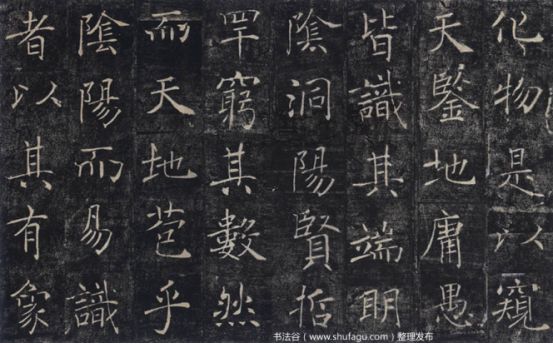 化物是以窺
天鑒地庸愚
皆識其端明
陰洞陽賢哲
罕窮其數然
而天地苞乎
陰陽而易識
者以其有象
书法谷（www.shufagu.com）整理发布